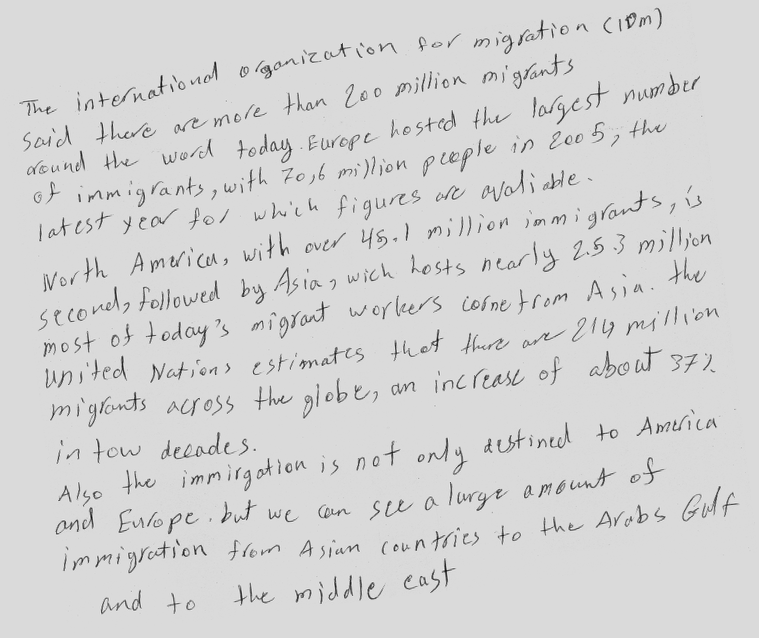 The international organization for migration (IOM)
said there are more than 200 million migrants
around the word today. Europe hosted the largest number
of immigrants, with 70,6 million people in 2005, the
latest year for which figures are avaliable.
North America, with over 45.1 million immigrants, is
second, followed by Asia, wich hosts nearly 25.3 million
most of today's migrant workers come from Asia. the
United Nations estimates that there are 214 million
migrants across the globe, an increase of about 37%
in tow decades.
Also the immirgation is not only destined to America
and Europe. but we can see a large amount of
immigration from Asian countries to the Arabs Gulf
and to the middle east